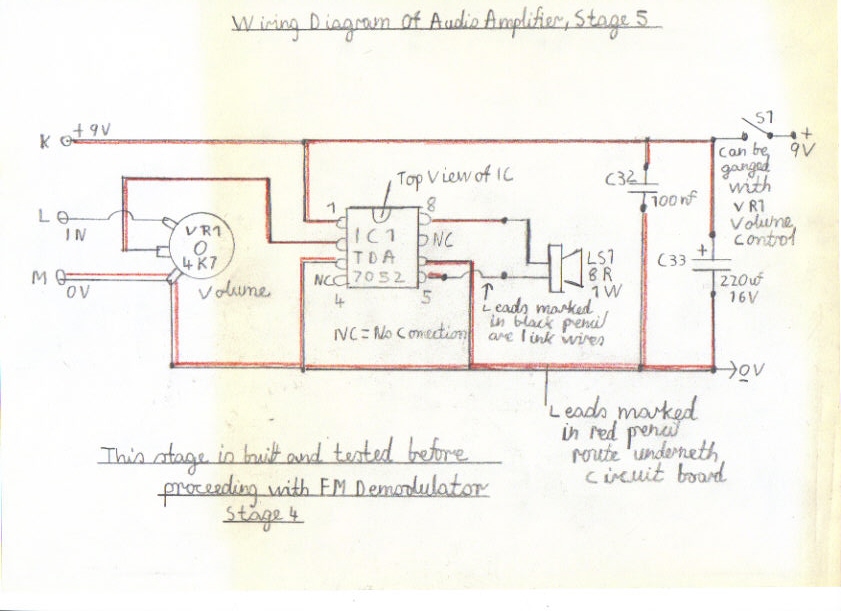 Wiring Diagram Of Audio Amplifier, Stage 5
S1
+
9V
K +9V
can be
ganged
with
VR1
Volume
Control
Top View of IC
C32
100nf
1
8
L
IN
VR1
4K7
IC1
TDA
7052
NC
NC
4
5
LS1
8R
1W
C33
+
220uf
16V
M
0V
Volume
Leads marked
in black pencil
are link wires
NC = No Connection
0V
Leads marked
in red pencil
route underneth
circuit board
This stage is built and tested before
proceeding with FM Demodulator
Stage 4